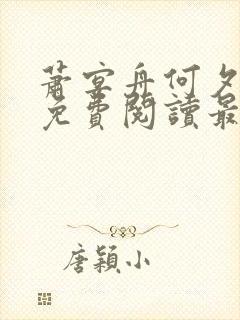 蕭宴舟何夕
免費閱讀最
唐穎小